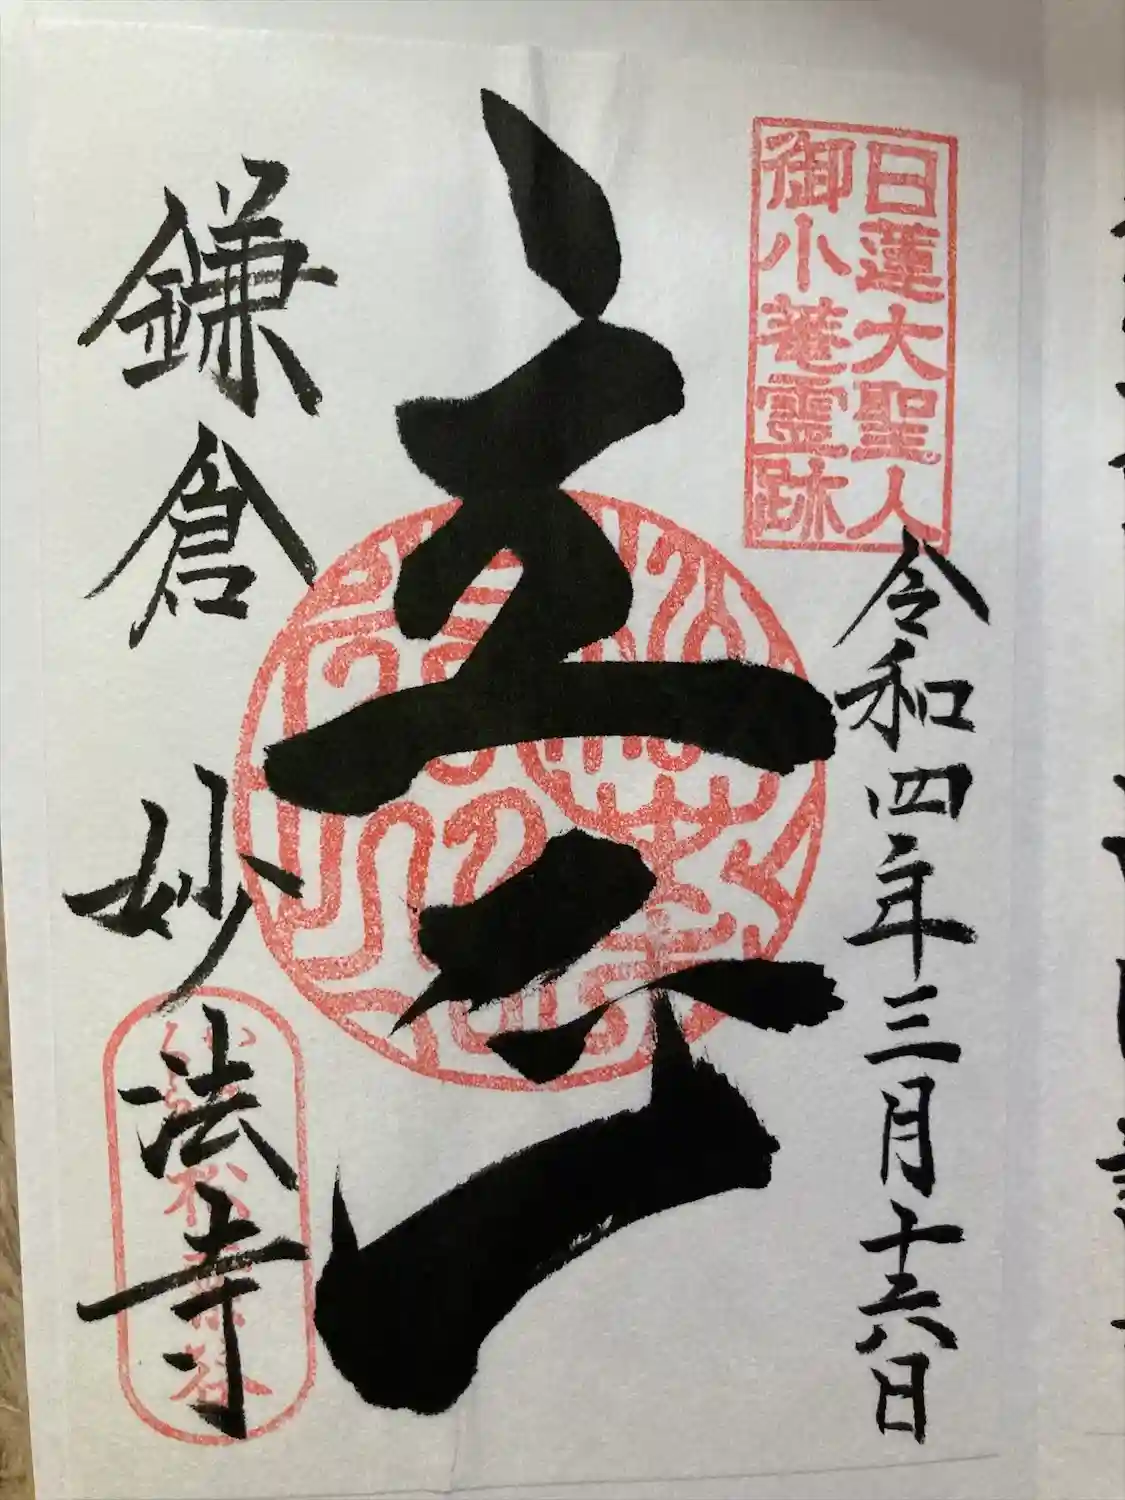 日蓮大聖人
御小菴霊跡
令和四年三月十六日
立正
鎌倉 妙法寺
松葉谷